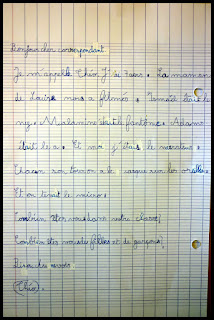 Bonjour cher correspondant
Je m'appelle Théo. J'ai 7 ans. La maman
de Louise nous a filmés. Ismaël était le
ny. Malamine était fantôme. Adam
était le a. Et moi j'étais le monsieur.
Chacun son tour on a le casque sur les oreilles.
Et on tenait le micro.
Combien êtes vous dans votre classe?
Combien êtes vous de filles et de garçons?
Théo.